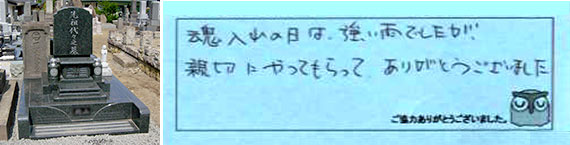 先祖代々之墓
魂入れの日は、強い雨でしたが、
親切にやってもらって ありがとうございました
ご協力ありがとうございました。